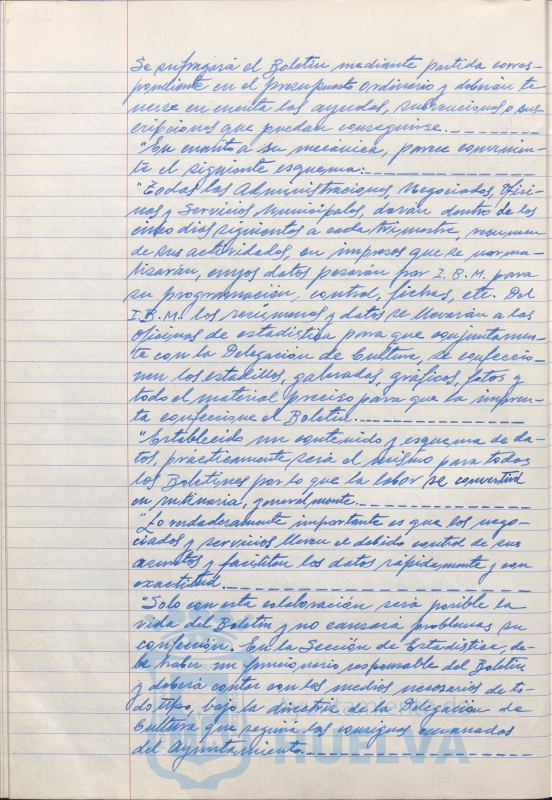 Se sufragará el Boletín mediante partida corres-
pondiente en el presupuesto Ordinario y deberán te
nerse en cuenta las ayudas, subvenciones o sus-
cripciones que puedan conseguirse.
"En cuanto a su mecánica, parece convenien-
te el siguiente esquema:
"Todas las Administraciones, Negociados, Ofici-
nas y Servicios Municipales, darán dentro de los
cinco días siguientes a cada trimestre, resumen
de sus actividades, en impresos que se norma-
lizarán, cuyos datos pasarán por I.B.M. para
su programación, control, fichas, etc. Del
I.B.M. los resúmenes y datos se llevarán a las
Oficinas de estadística para que conjuntamen-
te con la Delegación de Cultura, se confeccio-
nen los estadillos, galeradas, gráficos, fotos y
todo el material preciso para que la impren-
ta confeccione el Boletín.
"Establecido un contenido y esquema de da-
tos, prácticamente será el mismo para todos
los Boletines por lo que la labor se convertirá
en rutinaria, generalmente.
"Lo verdaderamente importante es que los nego-
ciados y servicios lleven el debido control de sus
asuntos y faciliten los datos rápidamente y con
exactitud.
"Solo con esta colaboración será posible la
vida del Boletín y no causará problemas su
confección. En la Sección de Estadística, de-
be haber un funcionario responsable del Boletín
y deberá contar con los medios necesarios de to-
do tipo, bajo la directriz de la Delegación de
Cultura que seguirá las consignas emanadas
del Ayuntamiento.
HUELVA